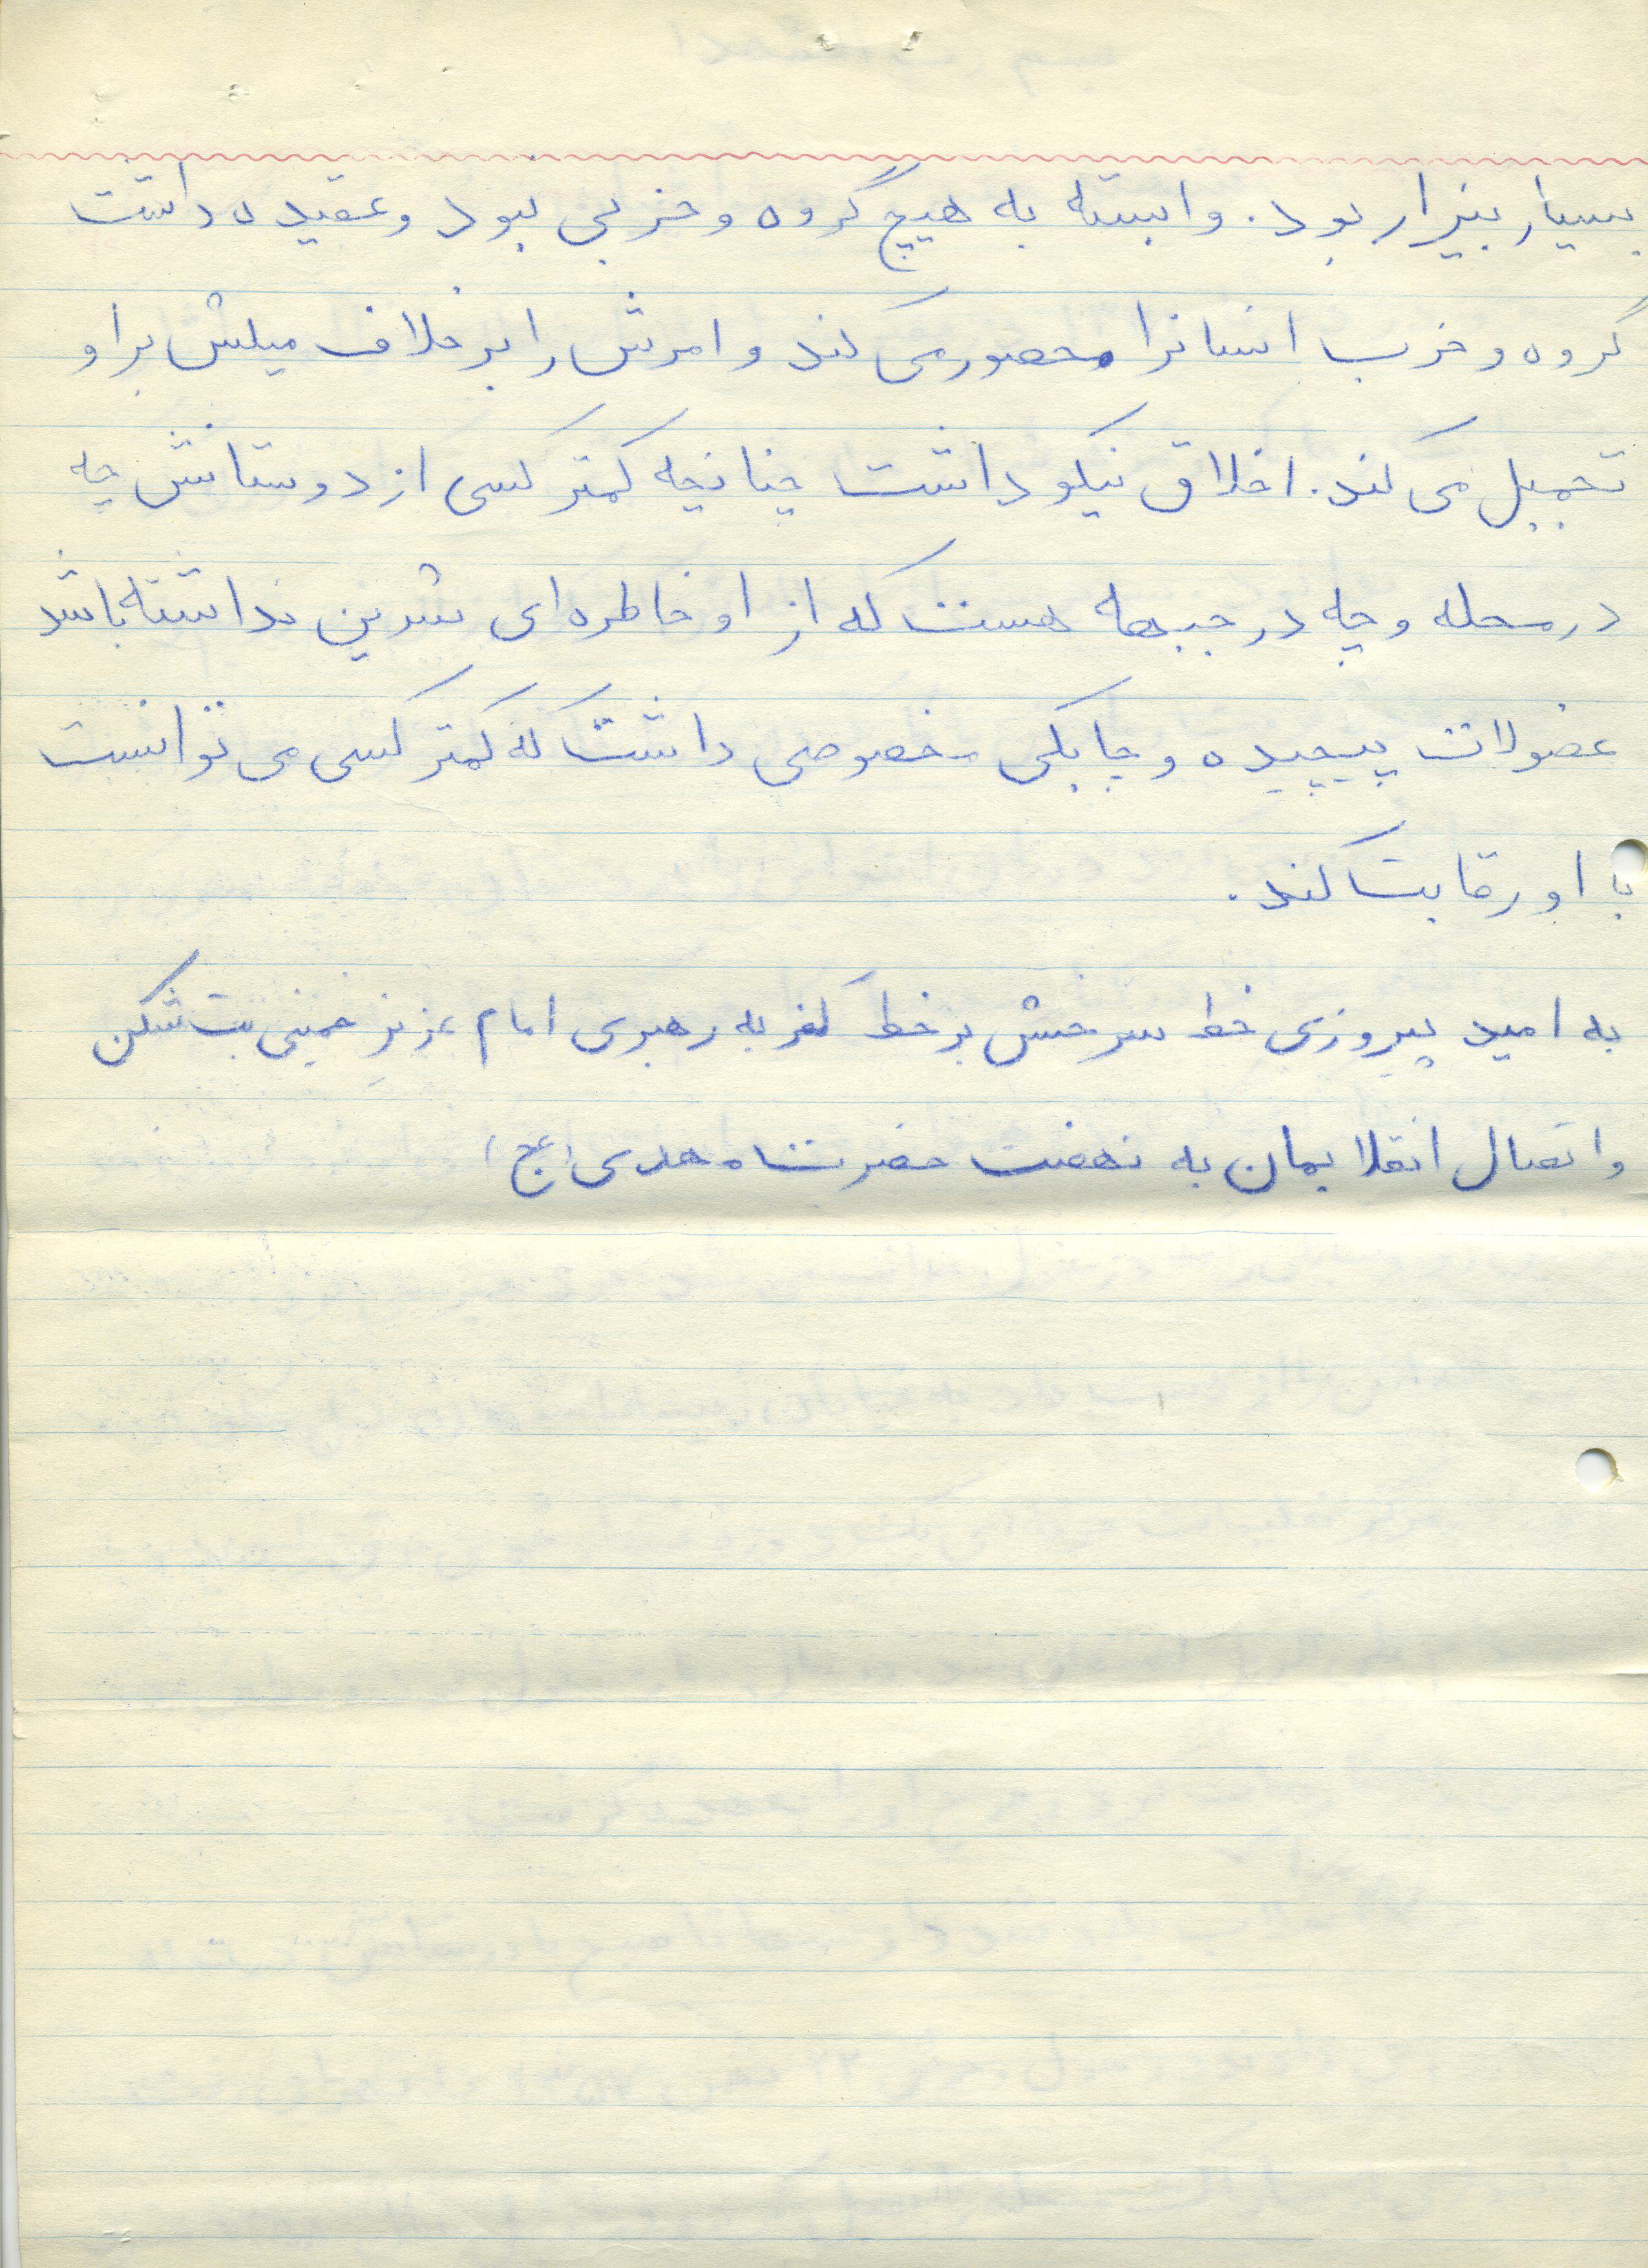 بسیار بیزار بود. وابسته به هیچ گروه و حزبی نبود و عقیده داشت
گروه و حزب انسانرا محصور می کند و امرش را بر خلاف میلش بر او
تحمیل می کند. اخلاق نیکو داشت چنانچه کمتر کسی از دوستانش چه
در محله و چه در جبهه هست که از او خاطره ای شرین نداشته باشد
عضولات پیچیده و چابکی مخصوصی داشت که کمتر کسی می توانست
با او رقابت کند.
به امید پیروزی خط سرخش بر خط کفر به رهبری امام عزیز خمینی بت شکن
و اتصال انقلابمان به نهضت حضرت مهدی (عج)